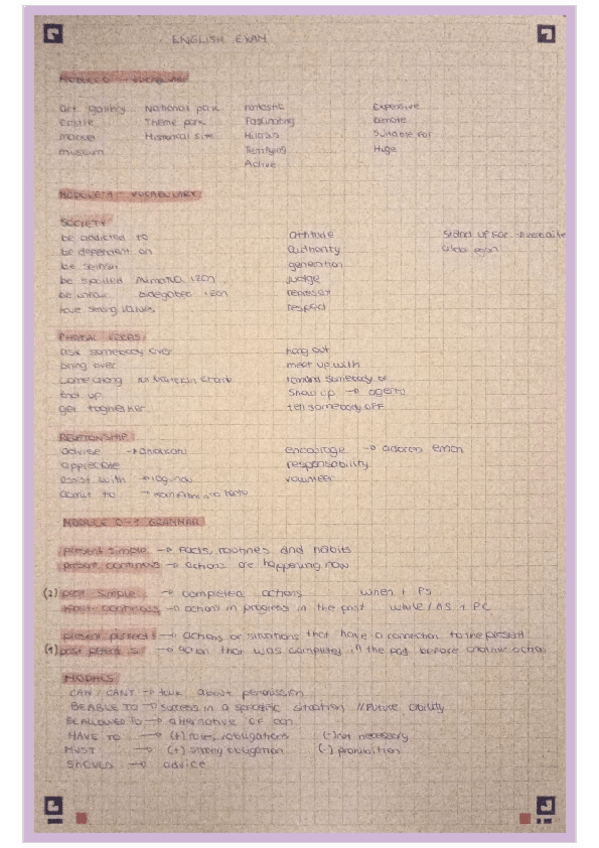 ENGLISH EXAM
MODULE 0 - VOCABULARY
Art gallery National park Fantastic Expensive
Castle Theme park Fascinating Remote
Market Historical site Historic Suitable for
museum Terrifying Huge
Active
MODULE 1 - VOCABULARY
SOCIETY
be addicted to attitude Stand up for
be dependent on authority
be selfish generation
be spoiled judge
be unfair
have strong values respect
PHRASAL VERBS
ask somebody over hang out
bring over meet up with
come along remind somebody of
end up show up → agertu
get together tell somebody off
RELATIONSHIP
advise encourage → adoren eman
appreciate responsability
assist with volunteer
admit to
MODULE 0-1 GRAMMAR
present simple → Facts, routines and habits
present continuous → actions are happening now
(2) past simple → completed actions when + PS
past continuous → actions in progress in the past while / as + PC
present perfect → actions or situations that have a connection to the present
(1) past perfect → action that was in the past before another action
MODALS
CAN / CAN'T → talk about permission
BE ABLE TO → success in a specific situation // Future ability
BE ALLOWED TO → alternative of can
HAVE TO → (+) rules, obligations (-) not necessary
MUST → (+) strong obligation (-) prohibition
SHOULD → advice